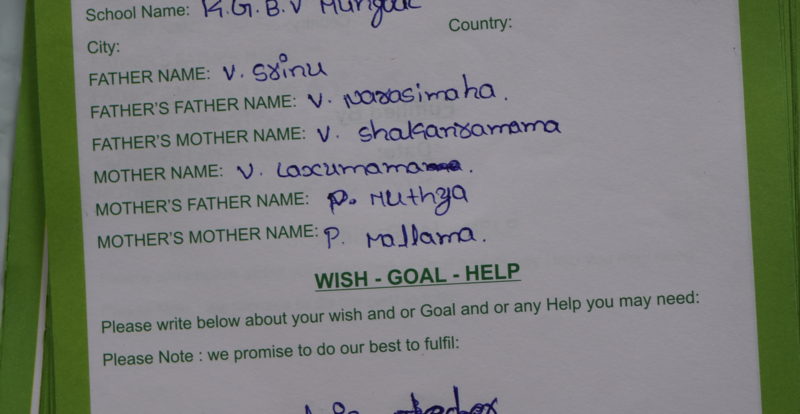 School Name: K.G.B.V Mungal
Country:
City:
FATHER NAME: V. Srinu
FATHER'S FATHER NAME: V. Narasimaha.
FATHER'S MOTHER NAME: V.
MOTHER NAME: V. Laxumama.
MOTHER'S FATHER NAME: P. Muthya
MOTHER'S MOTHER NAME: P. Mallama.
WISH - GOAL - HELP
Please write below about your wish and or Goal and or any Help you may need:
Please Note : we promise to do our best to fulfil: